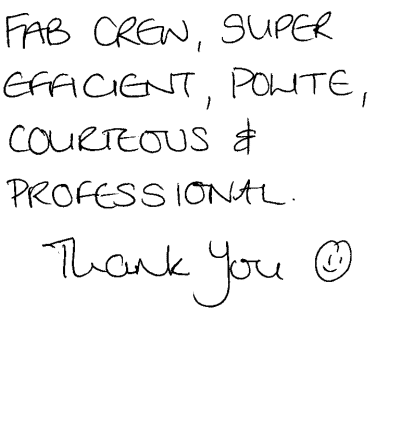 FAB CREW, SUPER
EFFICIENT, POLITE,
COURTEOUS &
PROFESSIONAL.
Thank you ☺